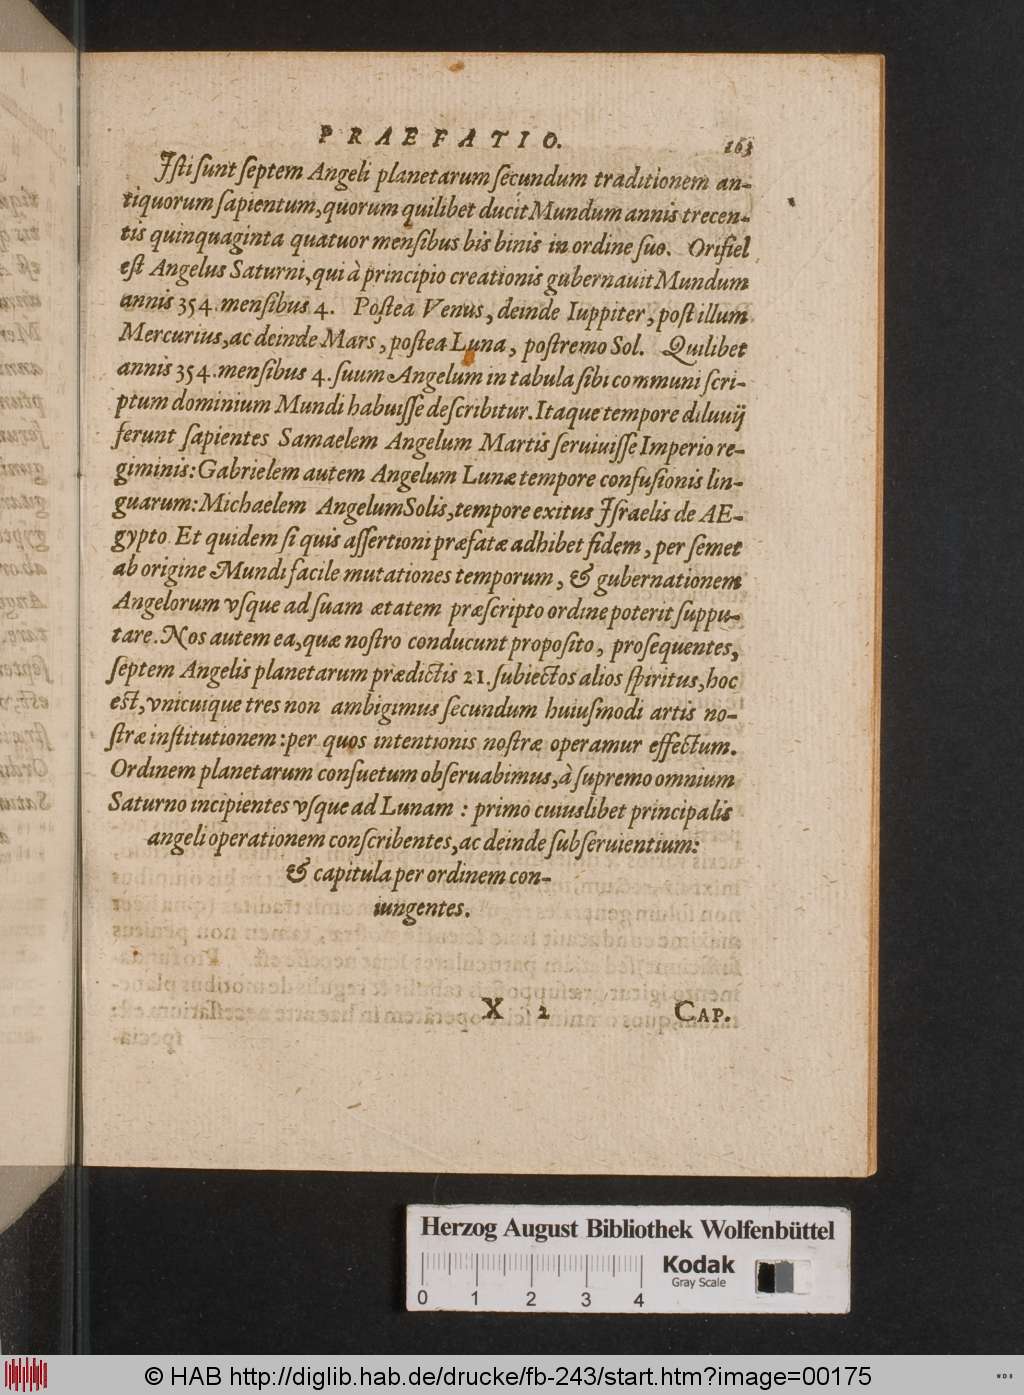 PRAEFATIO. 163
Iſti ſunt ſeptem Angeli planetarum ſecundum traditionem an-
tiquorum ſapientum, quorum quilibet ducit Mundum annis trecen-
tis quinquaginta quatuor menſibus bis binis in ordine ſuo. Orifiel
eſt Angelus Saturni, qui à principio creationis gubernauit Mundum
annis 354. menſibus 4. Poſtea Venus, deinde Iuppiter, poſt illum
Mercurius, ac deinde Mars, poſtea Luna, poſtremo Sol. Quilibet
annis 354. menſibus 4. ſuum Angelum in tabula ſibi communi ſcri-
ptum dominium Mundi habuiſſe deſcribitur. Itaque tempore diluuij
ferunt ſapientes Samaelem Angelum Martis ſeruiuiſſe Imperio re-
giminis: Gabrielem autem Angelum Lunæ tempore confuſionis lin-
guarum: Michaelem Angelum Solis, tempore exitus Iſraelis de AE-
gypto. Et quidem ſi quis aſſertioni præfatæ adhibet fidem, per ſemet
ab origine Mundi facile mutationes temporum, & gubernationem
Angelorum vſque ad ſuam ætatem præſcripto ordine poterit ſuppu-
tare. Nos autem ea, quæ noſtro conducunt propoſito, proſequentes,
ſeptem Angelis planetarum prædictis 21. ſubiectos alios ſpiritus, hoc
est, vnicuique tres non ambigimus ſecundum huiuſmodi artis no-
ſtræ inſtitutionem: per quos intentionis noſtræ operamur effectum.
Ordinem planetarum conſuetum obſeruabimus, à ſupremo omnium
Saturno incipientes vſque ad Lunam : primo cuiuslibet principalis
angeli operationem conſcribentes, ac deinde ſubſeruientium:
& capitula per ordinem con-
iungentes.
X 2 CAP.
Herzog August Bibliothek Wolfenbüttel
Kodak
Gray Scale
0 1 2 3 4
© HAB http://diglib.hab.de/drucke/fb-243/start.htm?image=00175